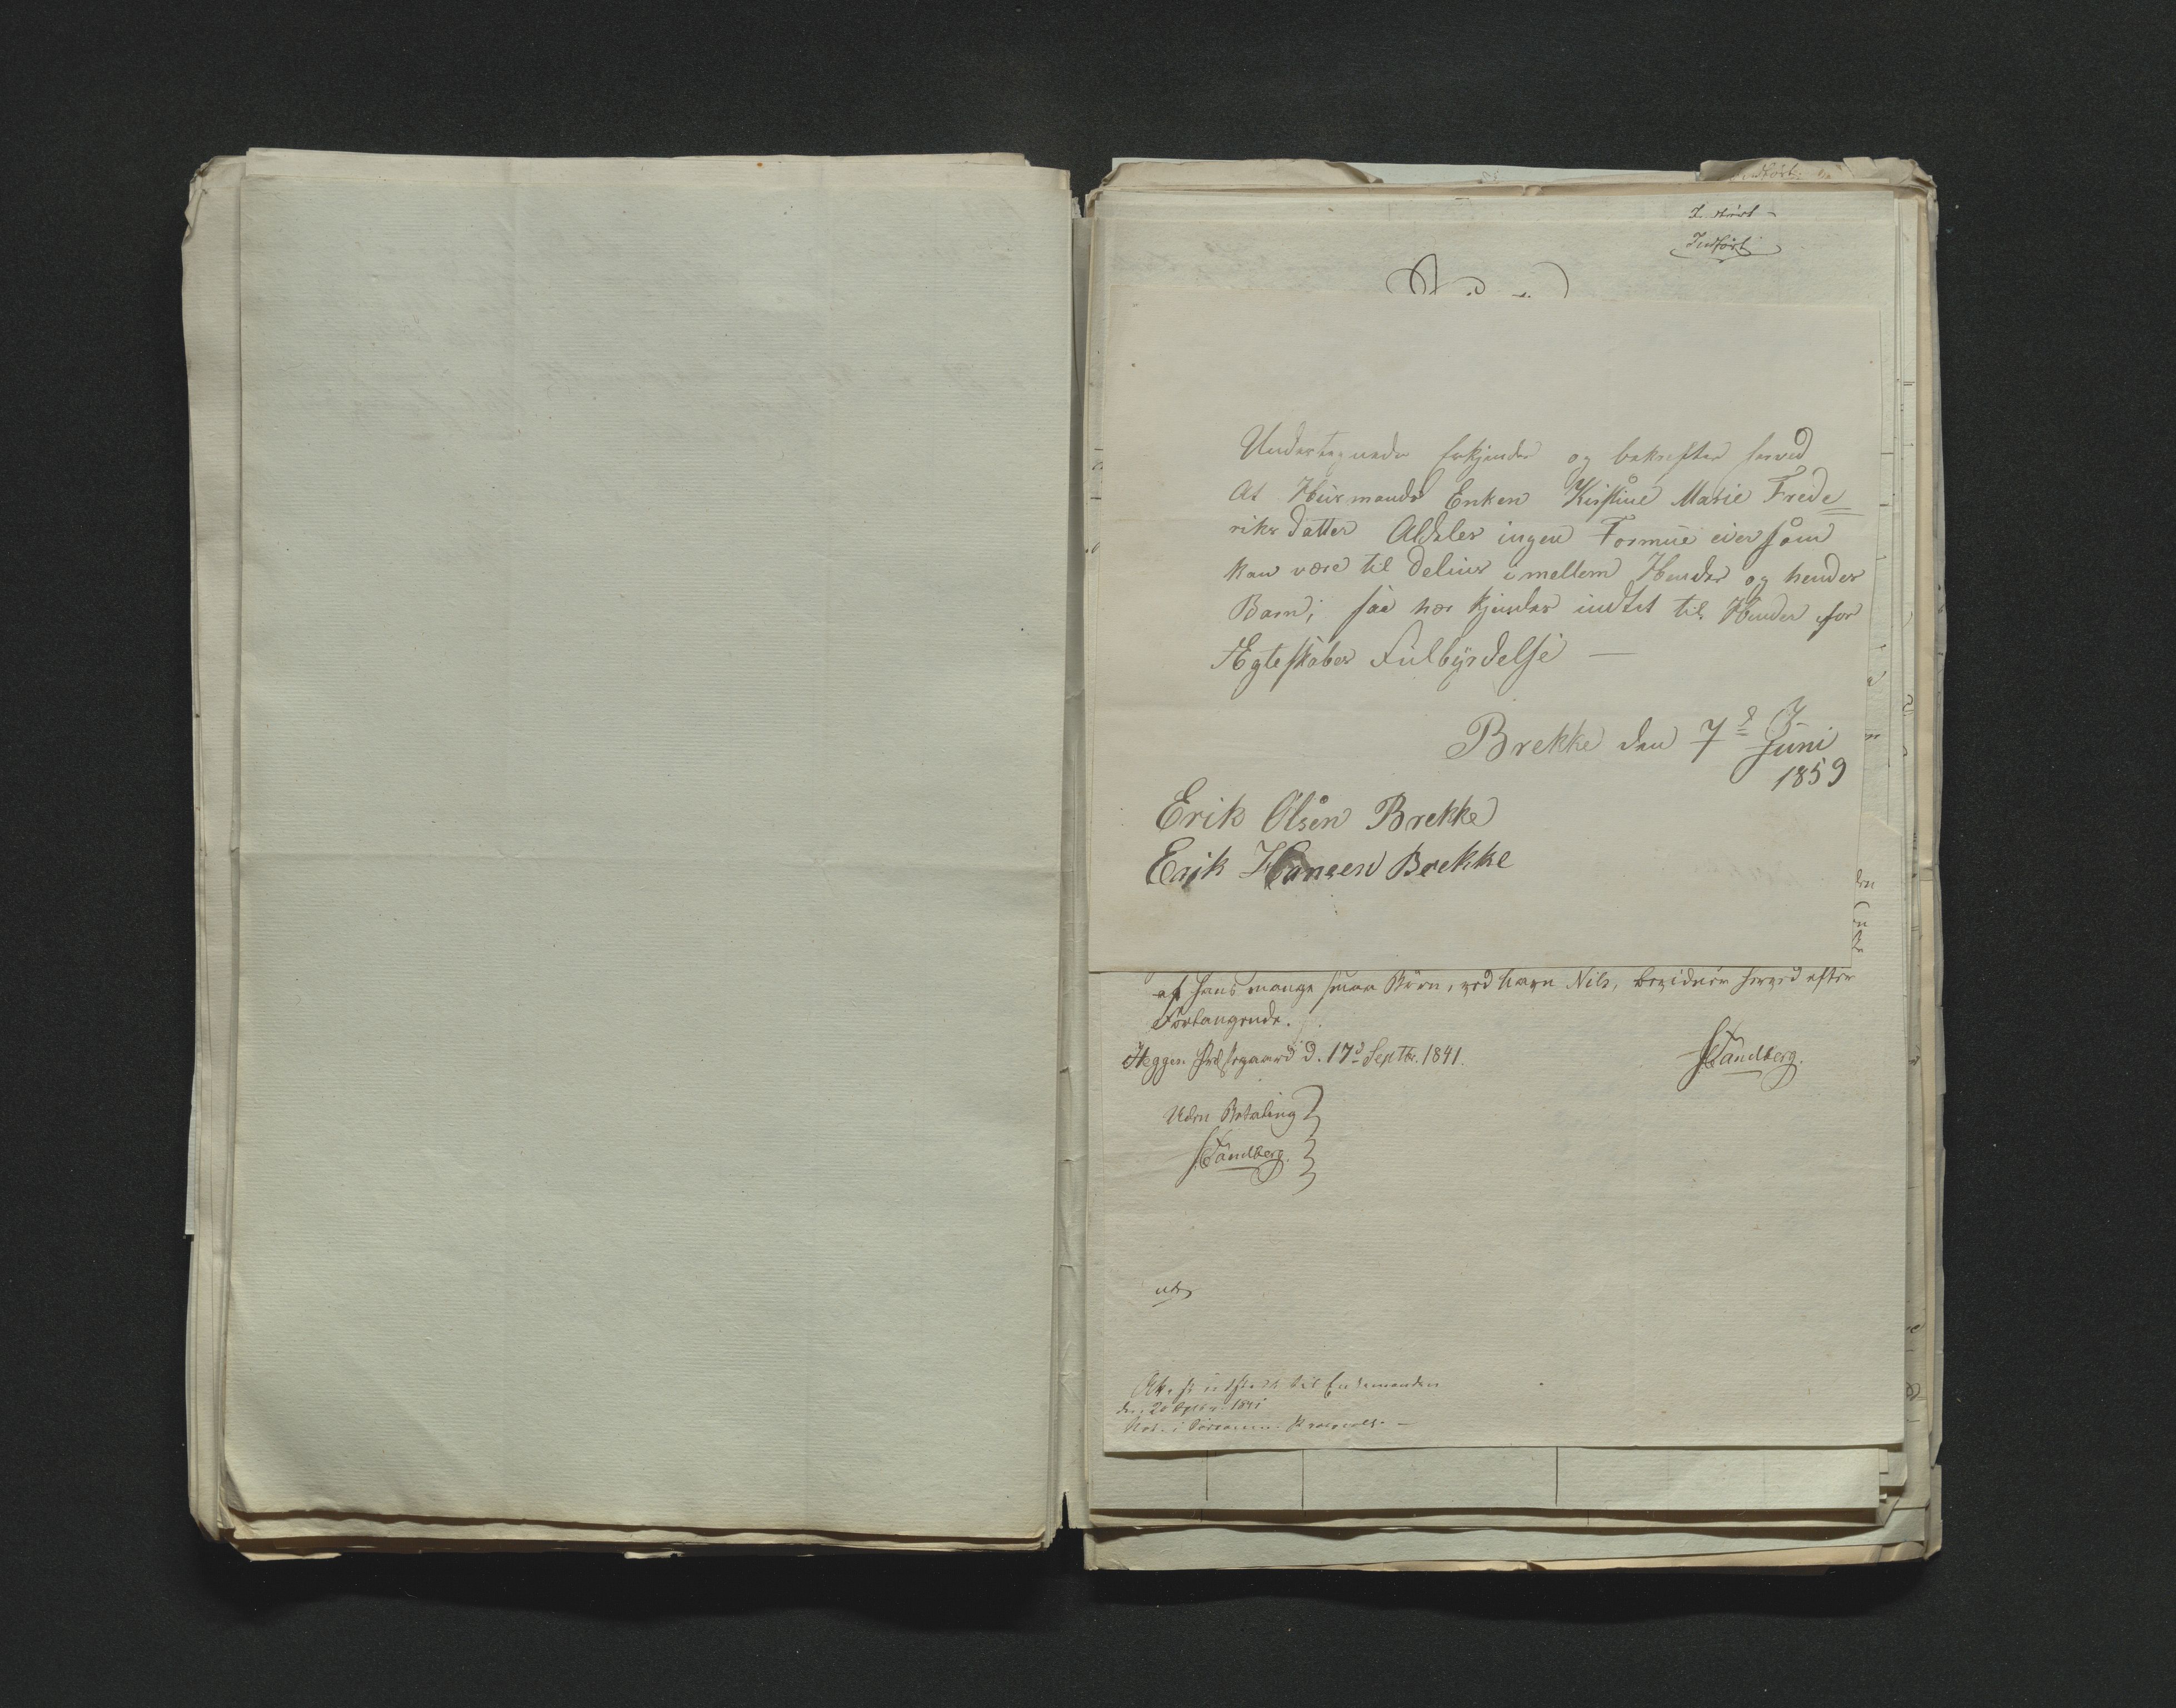 Indført
Undertegnede erkjender og bekrefter herved
At Huusmands Enken Kirstine Marie Frede=
riks datter Aldeles ingen Formue eier som
kan være til Deling imellem Hender og hendes
Barn; saa her kjendes indtet til Hinder for
Ægteskabes Fulbyrdelse —
Brekke den 7de Juni
1859
Erik Olsen Brekke
Erik Hansen Brekke
af hans mange smaa Børn, ved Navn Nils, bevidner herved efter
Forlangende.
Hegges Præstegaard d. 17de Septbr. 1841.
Sandberg.
Uden Betaling
Sandberg.
til Enkemanden
1841